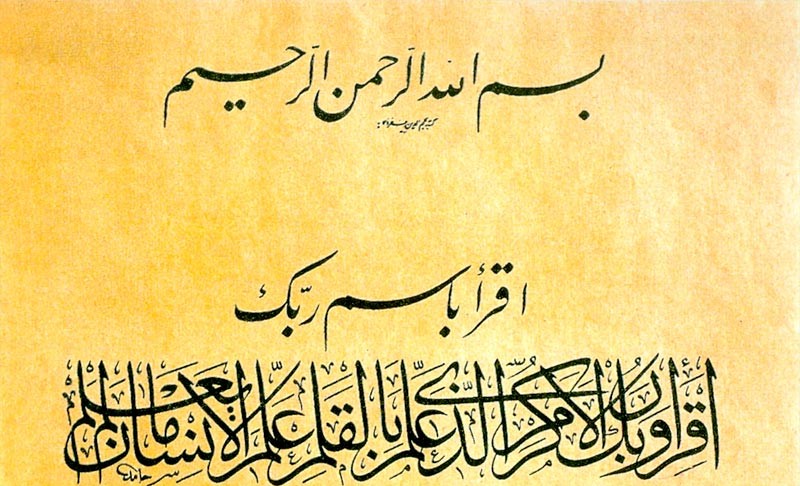 بسم الله الرحمن الرحيم
اقرأ باسم ربّك
اقرأ وربك الأكرم الذي علّم بالقلم علّم الإنسان ما لم يعلم